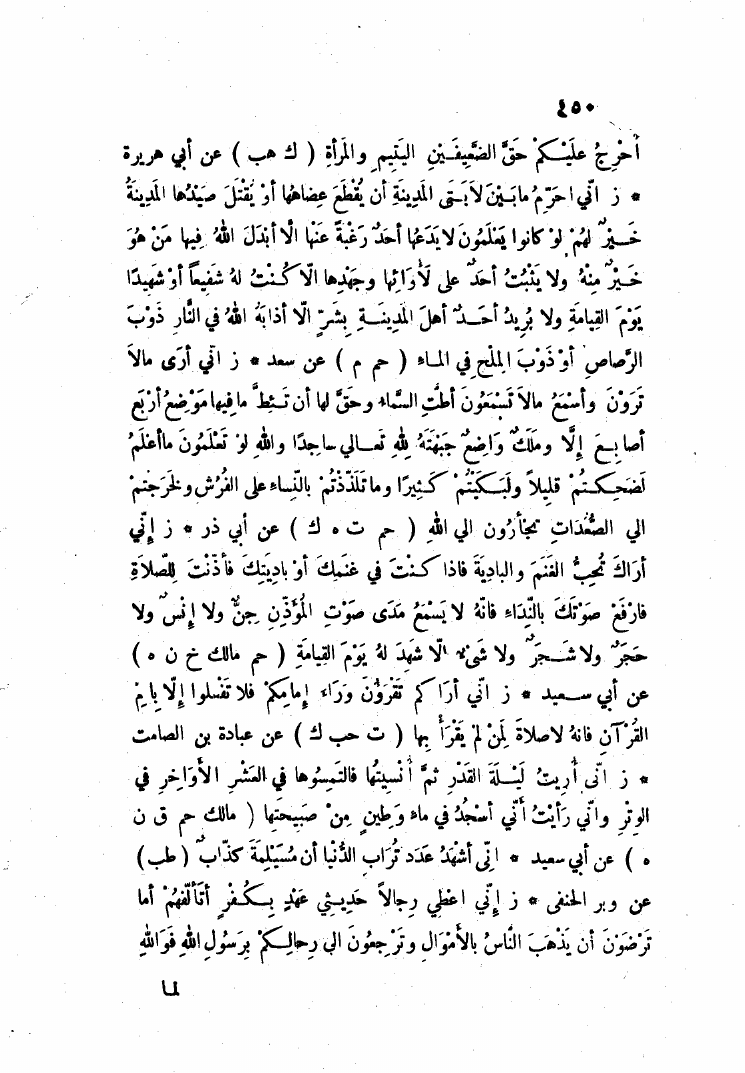 ٤٥٠
أُحَرِّجُ عَلَيْكُمْ حَقَّ الضَّعِيفَيْنِ اليَتِيمِ والمَرْأَةِ ( ك هب ) عن أبي هريرة
* ز انّي احَرِّمُ مابَيْنَ لاَبَتَىِ المَدِينَةِ أن يُقْطَعَ عِضاهُها أوْ يُقْتَلَ صَيْدُها المَدِينَةُ
خَيْرٌ لهُمْ لوْ كانوا يَعْلَمُونَ لا يَدَعُها أحَدٌ رَغْبَةً عَنْها الّا أبْدَلَ اللهُ فِيها مَنْ هُوَ
خَيْرٌ مِنْهُ ولا يَثْبُتُ أحَدٌ على لَأْوَائِها وجَهْدِها الّا كُنْتُ لهُ شَفِيعاً أوْ شَهِيدًا
يَوْمَ القِيامَةِ ولا يُرِيدُ أحَدٌ أهلَ المَدِينَةِ بِشَرٍّ الّا أذابَهُ اللهُ في النَّارِ ذَوْبَ
الرَّصاصِ أوْ ذَوْبَ المِلْحِ في الماء ( حم م ) عن سعد * ز انّي أرَى مالاَ
تَرَوْنَ وأسْمَعُ مالاَ تَسْمَعُونَ أطَّتِ السَّماء وحَقَّ لها أن تَئِطَّ مافِيها مَوْضِعُ أرْبَعِ
أصابِعَ إلَّا ومَلَكٌ وَاضِعٌ جَبْهَتَهُ لِلّهِ تَعالي ساجِدًا واللهِ لوْ تَعْلَمُونَ ماأعْلَمُ
لَضَحِكْتُمْ قلِيلاً ولَبَكَيْتُمْ كَثِيرًا وما تَلَذَّذْتُمْ بالنِّساء على الفُرُشِ ولَخَرَجْتمْ
الي الصُّعُدَاتِ تَجْأرُون الي اللهِ ( حم ت ه ك ) عن أبي ذر * ز إنّي
أرَاكَ تُحِبُّ الغَنَمَ والبادِيَةَ فاذا كُنْتَ في غَنَمِكَ أوْ بادِيَتِكَ فأذَّنْتَ لِلصَّلاةِ
فارْفَعْ صَوْتَكَ بالنِّدَاء فانّهُ لا يَسْمَعُ مَدَى صَوْتِ المُؤَذِّنِ جِنٌّ ولا إنْسٌ ولا
حَجَرٌ ولا شَجَرٌ ولا شَىْءٌ الّا شَهِدَ لهُ يَوْمَ القِيامَةِ ( حم مالك خ ن ه )
عن أبي سعيد * ز انّي أرَاكم تَقْرَؤُنَ وَرَاء إمامِكمْ فلا تَفْعلوا إلّا بِاُمِّ
القُرْآنِ فانهُ لاصلاةَ لِمَنْ لمْ يَقْرَأْ بِها ( ت حب ك ) عن عبادة بن الصامت
* ز انّى أُرِيتُ لَيْلَةَ القَدْرِ ثمَّ أُنْسِيتُها فالتَمِسُوها في العَشْرِ الأوَاخِرِ في
الوتْرِ وانّي رَأيْتُ أنّي أسْجُدُ في ماء وَطِينٍ مِنْ صَبِيحَتِها ( مالك حم ق ن
ه ) عن أبي سعيد * انّى أشْهَدُ عَدَدَ تُرَابِ الدُّنْيا أن مُسَيْلِمَةَ كذّابٌ ( طب )
عن وبر الحنفى * ز إنّي اعْطِي رِجالاً حَدِيثِي عَهْدٍ بِكُفْرٍ أتَأَلّفُهُمْ أما
تَرْضَوْنَ أن يَذْهَبَ النَّاسُ بالأَمْوَالِ وتَرْجِعُونَ الى رِحالِكُمْ بِرَسُولِ اللهِ فَوَاللهِ
لما